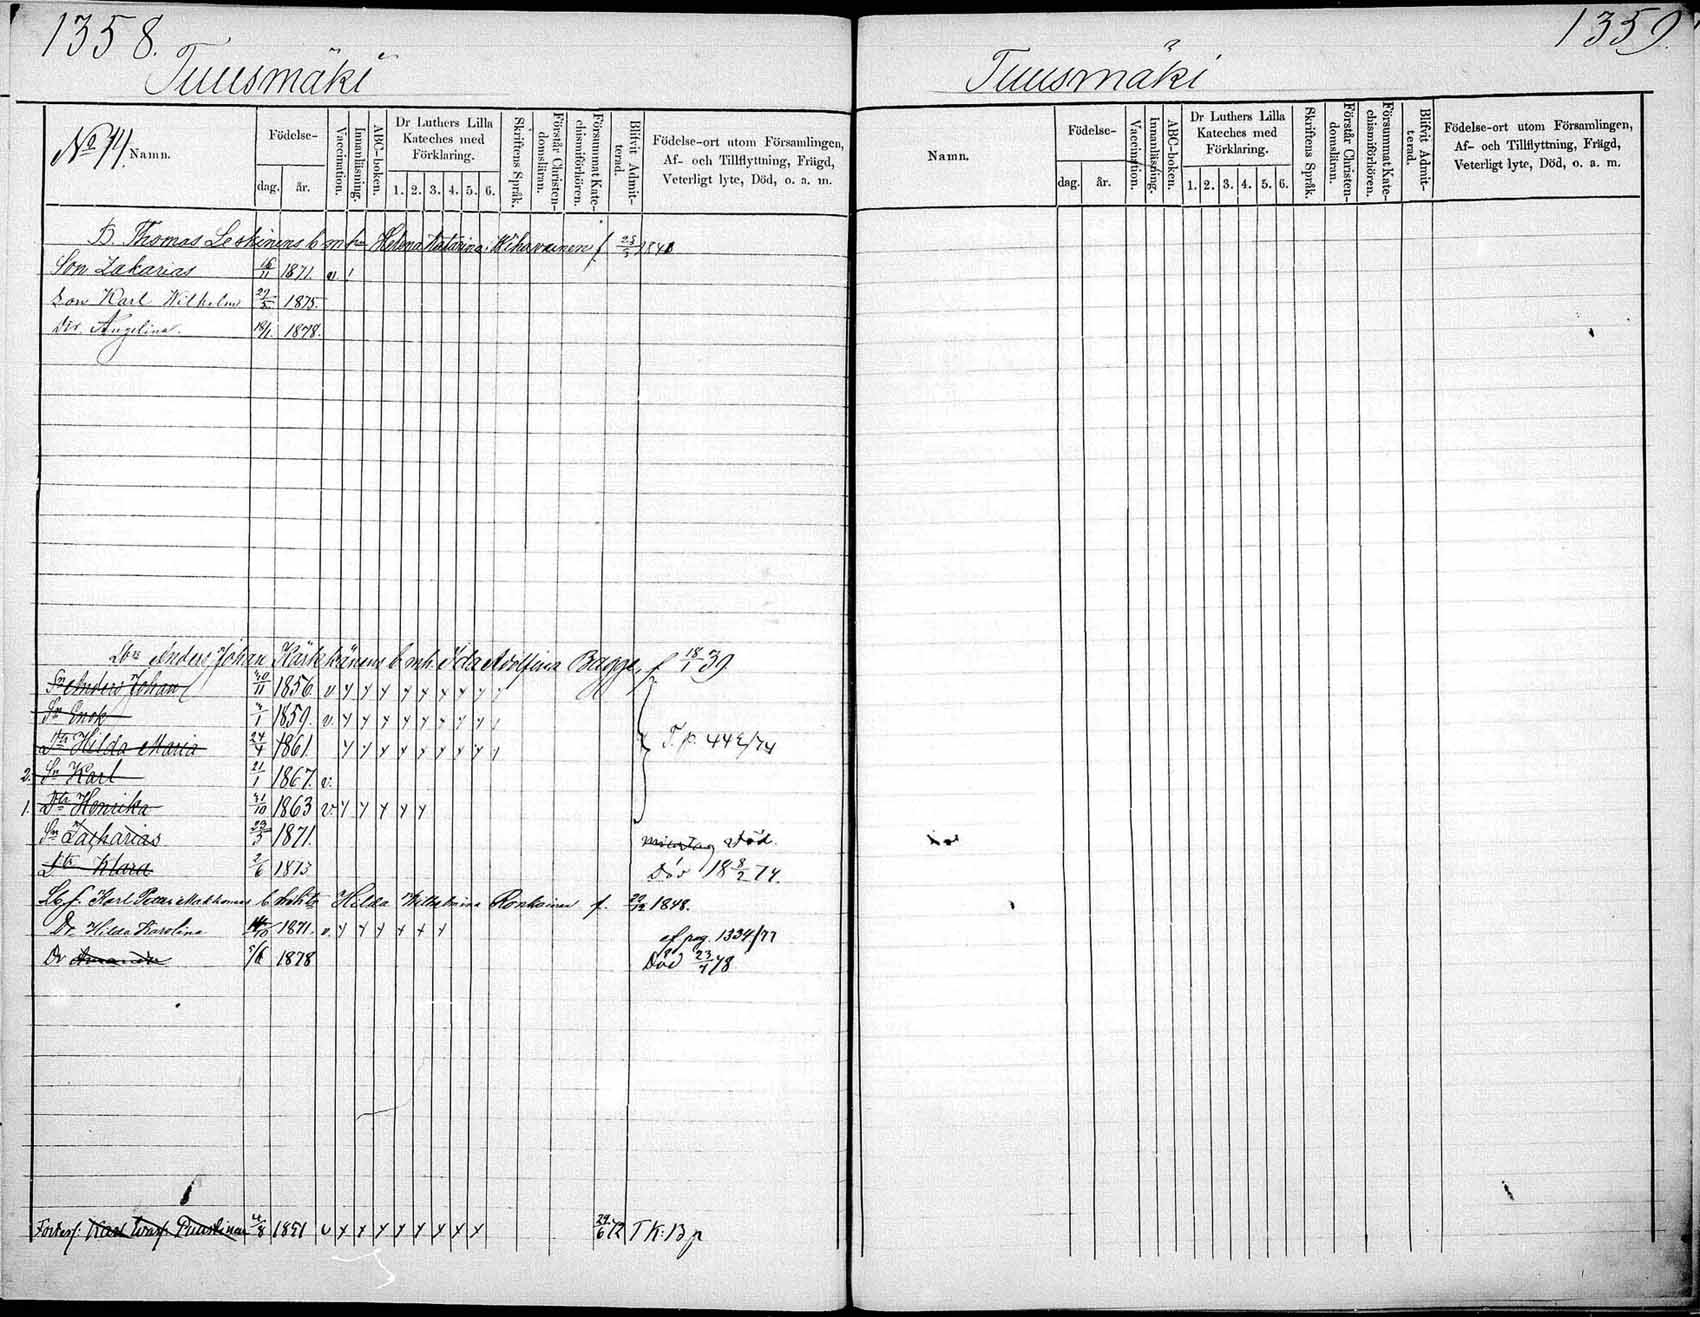 1358.
Tuusmäki
No 14. Namn.
Födelse-
dag.
år.
Vaccination.
Innanläsning.
ABC-boken.
Dr Luthers Lilla
Kateches med
Förklaring.
1. 2. 3. 4. 5. 6.
Skriftens Språk.
Förstår Christen-
domsläran.
Försummat Kate-
chismiförhören.
Blifvit Admit-
terad.
Födelse-ort utom Församlingen,
Af- och Tillflyttning, Frägd,
Veterligt lyte, Död, o. a. m.
B. Thomas Leskinens b m h Helena Katarina f. 
Son Zakarias 1871. v !
Son Karl Wilhelm 27/5 1875.
Dr. Angelina. 18/1. 1878.
Anders Johan Kärkkänens b. m h. Ida Adolfina Bagge, f 18/1 39
Sn Anders Johan 30/11 1856. v y y y y y y y
Sn Enok 1859. v. y y y y y y y y
Dtr Hilda Maria 24/4 1861. y y y y y y y y
T. p. 442/74
2. Sn Karl 21/1 1867. v.
1. Dtr Henrika 31/10 1863 v. y y y y y
Sn Zacharias 1871. Död.
Dtr Klara 2/6 1873 Död 18 8/2 74.
Karl b. Hilda Wilhelmina Ronkainen f. 1848.
Dr. Hilda Karolina 1871. v. y y y y y y
cf pag. 1334/77
Dr Amanda 5/6 1878 Död 23/7 78
Karl Puustinen 1851 v y y y y y y y y 29/6 72 T K: B p
1359.
Tuusmäki
Namn.
Födelse-
dag.
år.
Vaccination.
Innanläsning.
ABC-boken.
Dr Luthers Lilla
Kateches med
Förklaring.
1. 2. 3. 4. 5. 6.
Skriftens Språk.
Förstår Christen-
domsläran.
Försummat Kate-
chismiförhören.
Blifvit Admit-
terad.
Födelse-ort utom Församlingen,
Af- och Tillflyttning, Frägd,
Veterligt lyte, Död, o. a. m.